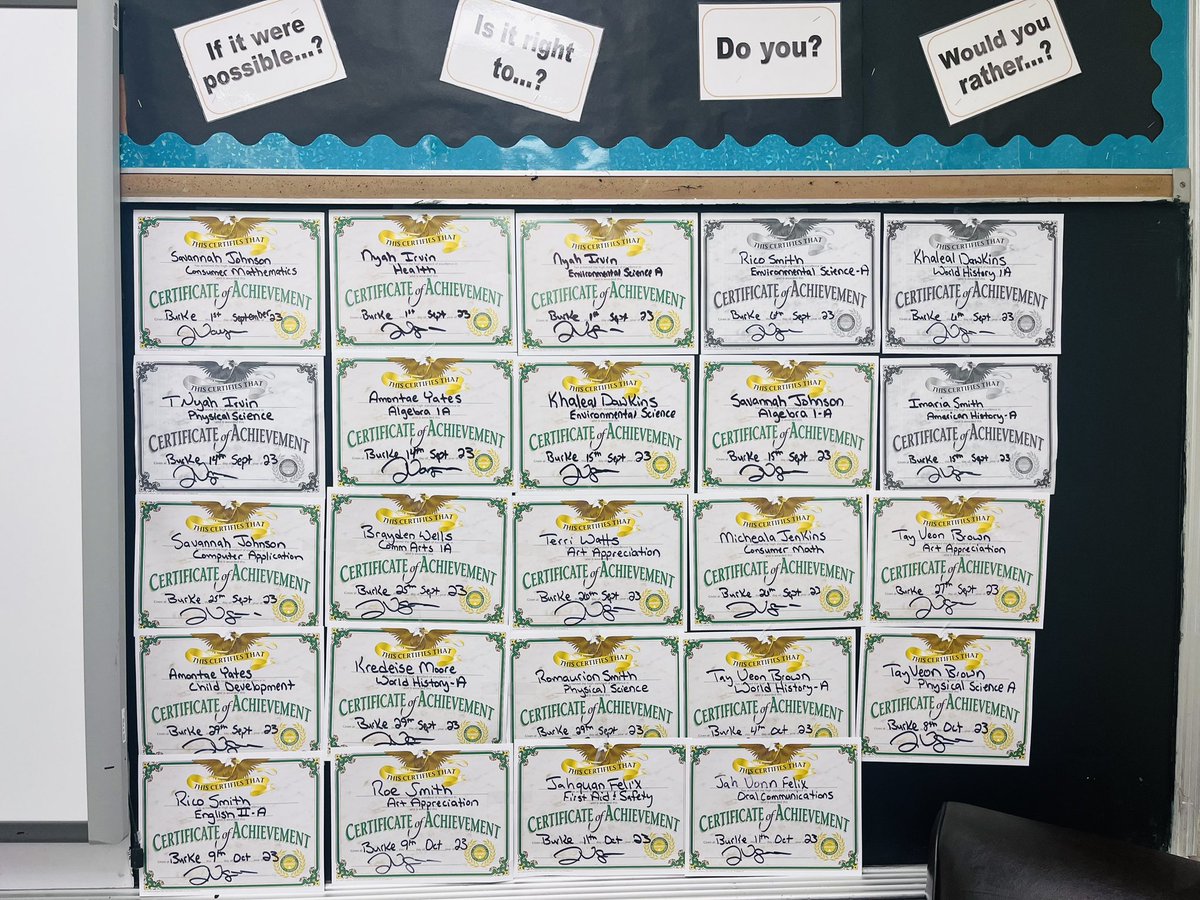 If it were
possible...?
Is it right
to...?
Do you?
Would you
rather...?
THIS CERTIFIES THAT
Savannah Johnson
Consumer Mathematics
CERTIFICATE of ACHIEVEMENT
Burke 1st September 23
THIS CERTIFIES THAT
Nyah Irvin
Health
CERTIFICATE of ACHIEVEMENT
Burke 1st Sept 23
THIS CERTIFIES THAT
Nyah Irvin
Environmental Science A
CERTIFICATE of ACHIEVEMENT
Burke 1st Sept 23
THIS CERTIFIES THAT
Rico Smith
Environmental Science-A
CERTIFICATE of ACHIEVEMENT
Burke Sept 23
THIS CERTIFIES THAT
Khaleal Dawkins
World History 1A
CERTIFICATE of ACHIEVEMENT
Burke Sept 23
THIS CERTIFIES THAT
T'Nyah Irvin
Physical Science
CERTIFICATE of ACHIEVEMENT
Burke 14th Sept 23
THIS CERTIFIES THAT
Amontae Yates
Algebra 1A
CERTIFICATE of ACHIEVEMENT
Burke 14th Sept 23
THIS CERTIFIES THAT
Khaleal Dawkins
Environmental Science
CERTIFICATE of ACHIEVEMENT
Burke 15th Sept 23
THIS CERTIFIES THAT
Savannah Johnson
Algebra 1-A
CERTIFICATE of ACHIEVEMENT
Burke 15th Sept 23
THIS CERTIFIES THAT
Imaria Smith
American History-A
CERTIFICATE of ACHIEVEMENT
Burke 15th Sept 23
THIS CERTIFIES THAT
Savannah Johnson
Computer Application
CERTIFICATE of ACHIEVEMENT
Burke 25th Sept 23
THIS CERTIFIES THAT
Brayden Wells
Comm Arts 1A
CERTIFICATE of ACHIEVEMENT
Burke 25th Sept 23
THIS CERTIFIES THAT
Terri Watts
Art Appreciation
CERTIFICATE of ACHIEVEMENT
Burke 26th Sept 23
THIS CERTIFIES THAT
Micheala Jenkins
Consumer Math
CERTIFICATE of ACHIEVEMENT
Burke 26th Sept 23
THIS CERTIFIES THAT
Tay Veon Brown
Art Appreciation
CERTIFICATE of ACHIEVEMENT
Burke 27th Sept 23
THIS CERTIFIES THAT
Amontae Yates
Child Development
CERTIFICATE of ACHIEVEMENT
Burke 29th Sept 23
THIS CERTIFIES THAT
Kredeise Moore
World History-A
CERTIFICATE of ACHIEVEMENT
Burke 29th Sept 23
THIS CERTIFIES THAT
Romaurion Smith
Physical Science
CERTIFICATE of ACHIEVEMENT
Burke 29th Sept 23
THIS CERTIFIES THAT
Tay Veon Brown
World History-A
CERTIFICATE of ACHIEVEMENT
Burke 4th Oct 23
THIS CERTIFIES THAT
TayVeon Brown
Physical Science A
CERTIFICATE of ACHIEVEMENT
Burke 8th Oct 23
THIS CERTIFIES THAT
Rico Smith
English II-A
CERTIFICATE of ACHIEVEMENT
Burke 9th Oct 23
THIS CERTIFIES THAT
Roe Smith
Art Appreciation
CERTIFICATE of ACHIEVEMENT
Burke 9th Oct 23
THIS CERTIFIES THAT
Jahquan Felix
First Aid & Safety
CERTIFICATE of ACHIEVEMENT
Burke 11th Oct 23
THIS CERTIFIES THAT
Jah Vonn Felix
Oral Communications
CERTIFICATE of ACHIEVEMENT
Burke 11th Oct 23